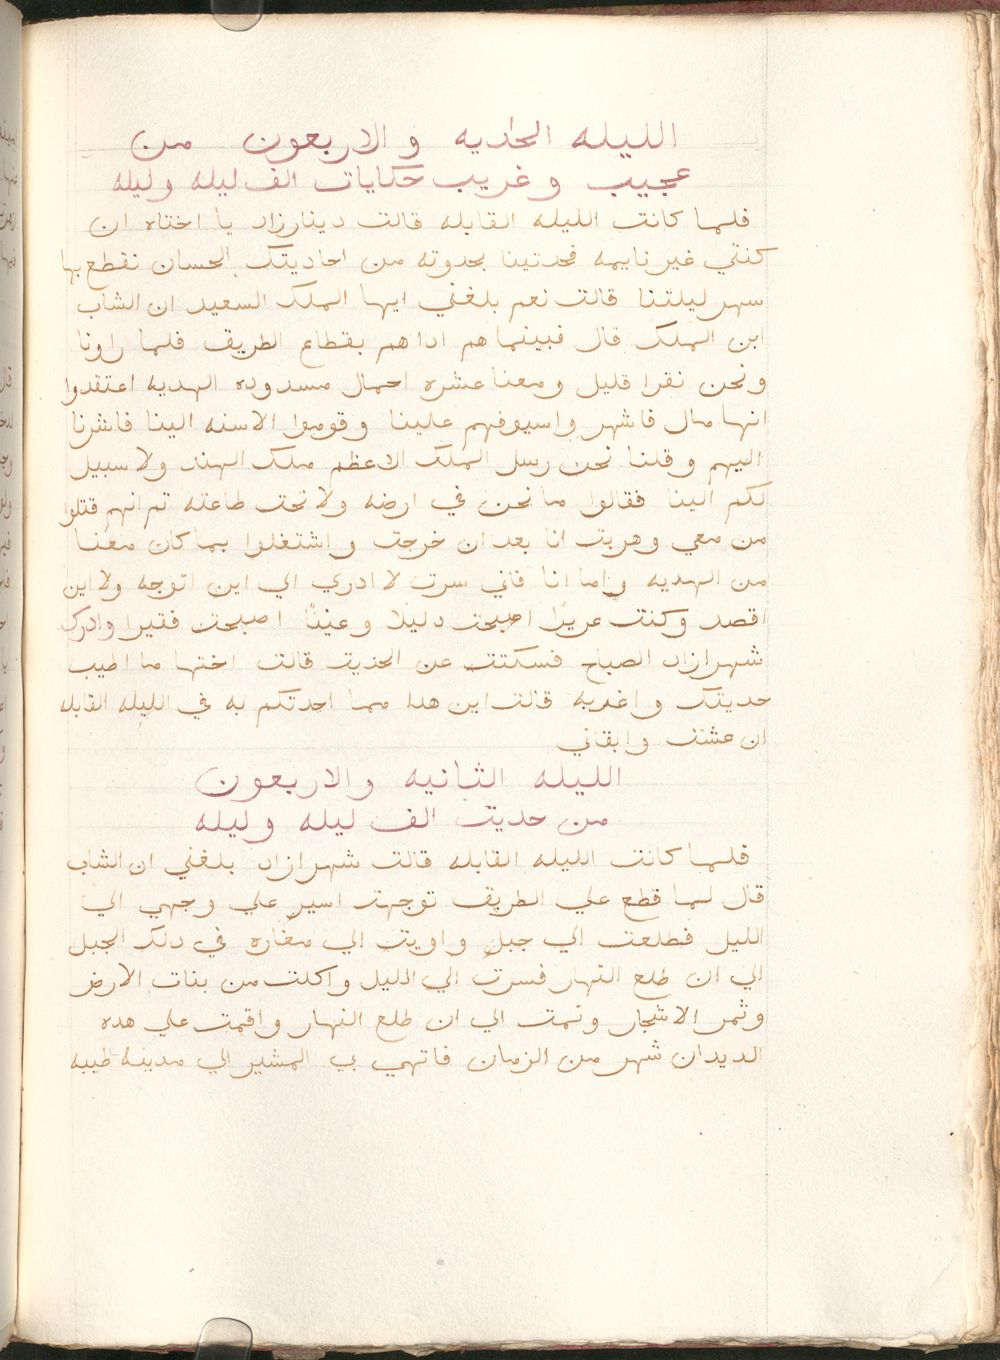 الليله الحاديه والاربعون من
عجيب وغريب حكايات الف ليله وليله
فلما كانت الليله القابله قالت دينارزاد يا اختاه ان
كنتي غير نايمه فحدتينا بحدوته من احاديتك الحسان نقطع بها
سهر ليلتنا قالت نعم بلغني ايها الملك السعيد ان الشاب
ابن الملك قال فبينما هم اداهم بقطاع الطريق فلما راونا
ونحن نفرا قليل ومعنا عشره احمال مسدوده الهديه اعتقدوا
انها مال فاشهر واسيوفهم علينا وقوموا الاسنه الينا فاشرنا
اليهم وقلنا نحن رسل الملك الاعظم ملك الهند ولا سبيل
لكم الينا فقالوا ما نحن في ارضه ولا نحت طاعته تم انهم قتلوا
من معي وهربت انا بعد ان خرجت واشتغلوا بما كان معنا
من الهديه واما انا فاني سرت لا ادري الي اين اتوجه ولا اين
اقصد وكنت عريزا اصبحت دليلا وغنيا اصبحت فقيرا وادرك
شهرازاد الصباح فسكتت عن الحديت قالت اختها ما اطيب
حديتك واغدبه قالت اين هدا مما احدتكم به في الليله القابله
ان عشت وابقاني
الليله الثانيه والاربعون
من حديت الف ليله وليله
فلما كانت الليله القابله قالت شهرازاد بلغني ان الشاب
قال لما قطع علي الطريق توجهت اسير علي وجهي الي
الليل فطلعت الي جبل واويت الي مغاره في دلك الجبل
الي ان طلع النهار فسرت الي الليل واكلت من بنات الارض
وثمر الاشجار ونمت الي ان طلع النهار واقمت علي هده
الديدان شهر من الزمان فاتهي بي المشير الي مدينة طيبه